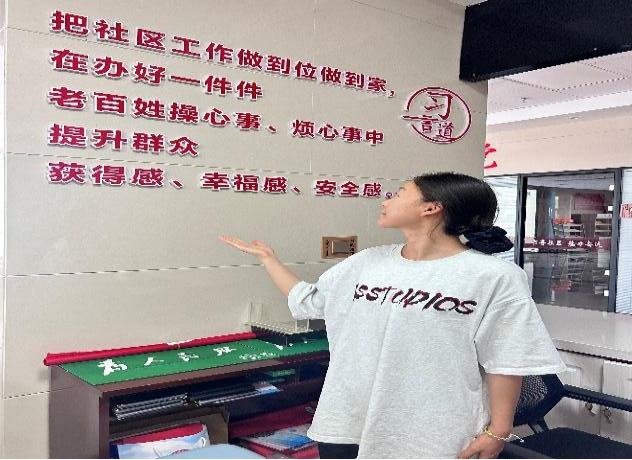 把社区工作做到位做到家，
在办好一件件
老百姓操心事、烦心事中
提升群众
获得感、幸福感、安全感。
习
言道
SSTUDIOS
为人民服